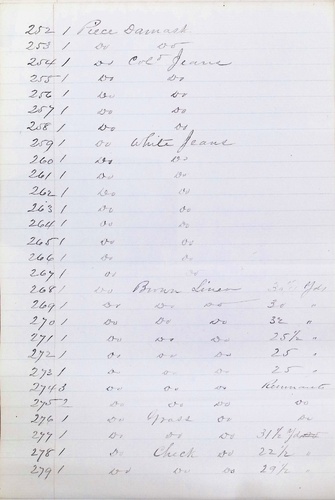 252 1 Piece Damask
253 1 do do
254 1 do Cold Jeans
255 1 do do
256 1 do do
257 1 do do
258 1 do do
259 1 do White Jeans
260 1 do do
261 1 do do
262 1 do do
263 1 do do
264 1 do do
265 1 do do
266 1 do do
267 1 do do
268 1 do Brown Linen Yds
269 1 do do do 30 "
270 1 do do do 32 "
271 1 do do do 25½ "
272 1 do do do 25 "
273 1 do do do 25 "
274 3 do do do Remnants
275 2 do do do do
276 1 do Grass do do
277 1 do do do 31½ Yds
278 1 do Check do 22½ "
279 1 do do do 29½ "